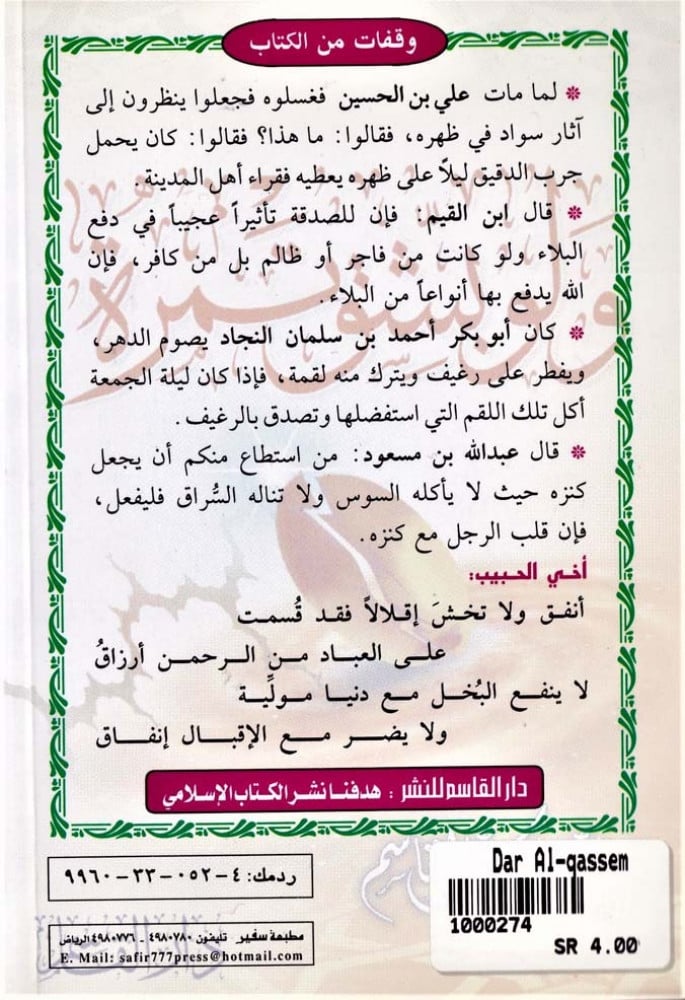 وقفات من الكتاب
* لما مات علي بن الحسين فغسلوه فجعلوا ينظرون إلى
آثار سواد في ظهره، فقالوا: ما هذا؟ فقالوا: كان يحمل
جرب الدقيق ليلاً على ظهره يعطيه فقراء أهل المدينة.
* قال ابن القيم: فإن للصدقة تأثيراً عجيباً في دفع
البلاء ولو كانت من فاجر أو ظالم بل من كافر، فإن
الله يدفع بها أنواعاً من البلاء.
* كان أبو بكر أحمد بن سلمان النجاد يصوم الدهر،
ويفطر على رغيف ويترك منه لقمة، فإذا كان ليلة الجمعة
أكل تلك اللقم التي استفضلها وتصدق بالرغيف.
* قال عبدالله بن مسعود: من استطاع منكم أن يجعل
كنزه حيث لا يأكله السوس ولا تناله السُّراق فليفعل،
فإن قلب الرجل مع كنزه.
أخي الحبيب:
أنفق ولا تخشَ إقلالاً فقد قُسمت
على العباد من الرحمن أرزاقُ
لا ينفع البُخل مع دنيا مولِّية
ولا يضر مع الإقبال إنفاق
دار القاسم للنشر : هدفنا نشر الكتاب الإسلامي
ردمك: ٤-٠٥٢-٣٣-٩٩٦٠
Dar Al-qassem
1000274
SR 4.00
مطبعة سفير تليفون ٤٩٨٠٧٨٠ - ٤٩٨٠٧٧٦ الرياض
E. Mail: safir777press@hotmail.com
ولو بشق تمرة